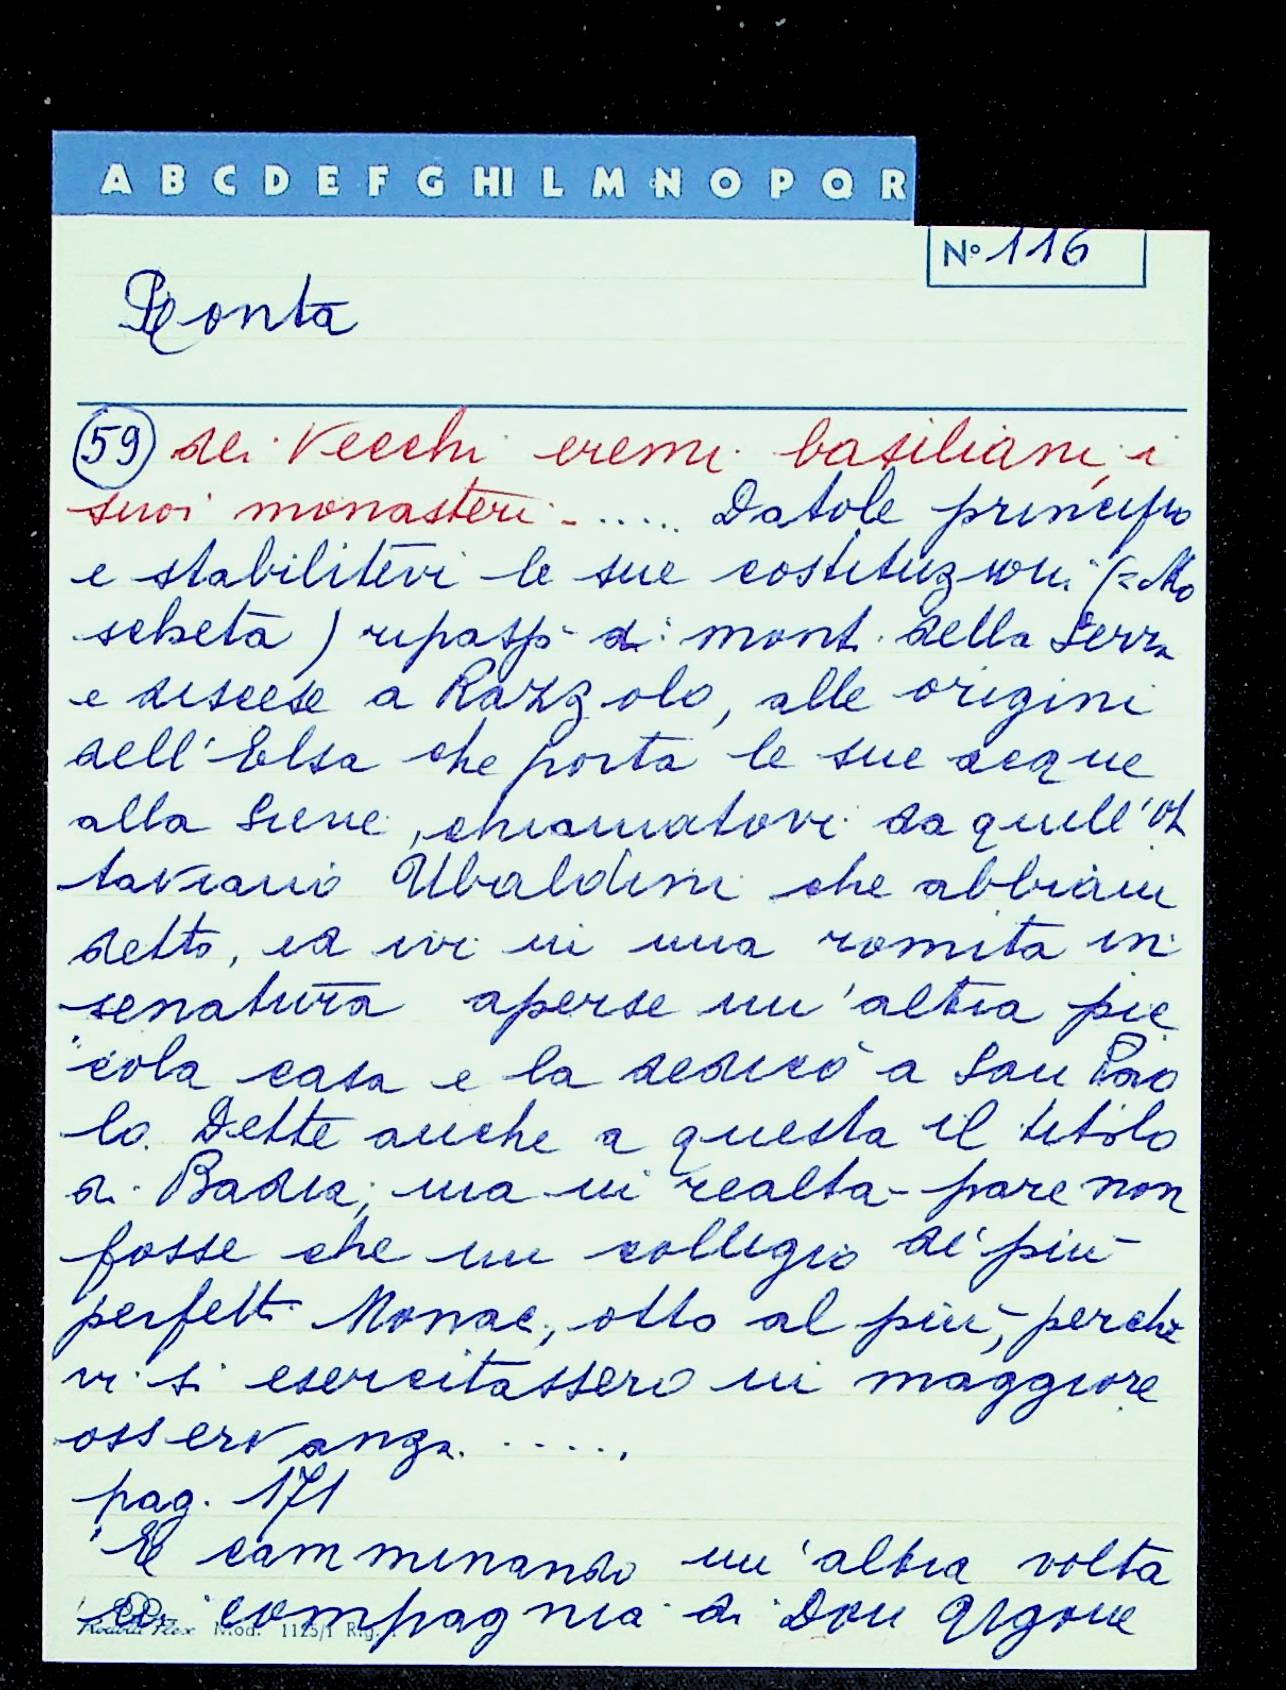 A B C D E F G HI L M N O P Q R
N° 116
Ronta
59 dei vecchi eremi basiliani, i
suoi monasteri - ..... Datole principio
e stabilitevi le sue costituzioni (= Mo
scheta) ripassò di mont. della Serra
e discese a Razzolo, alle origini
dell'Elsa che porta le sue acque
alla Sieve, chiamatovi da quell'Ot
taviano Ubaldini che abbiam
detto, ed ivi in una romita in
senatura aperse un'altra pic
cola casa e la dedicò a San Pao
lo. Dette anche a questa il titolo
di Badia; ma in realtà pare non
fosse che un collegio di più
perfetti Monaci, otto al più, perchè
vi si esercitassero in maggiore
osservanza. .....
pag. 171
"E camminando un'altra volta
in compagnia di Don Rigone
Mod. 1125/1 Rig.